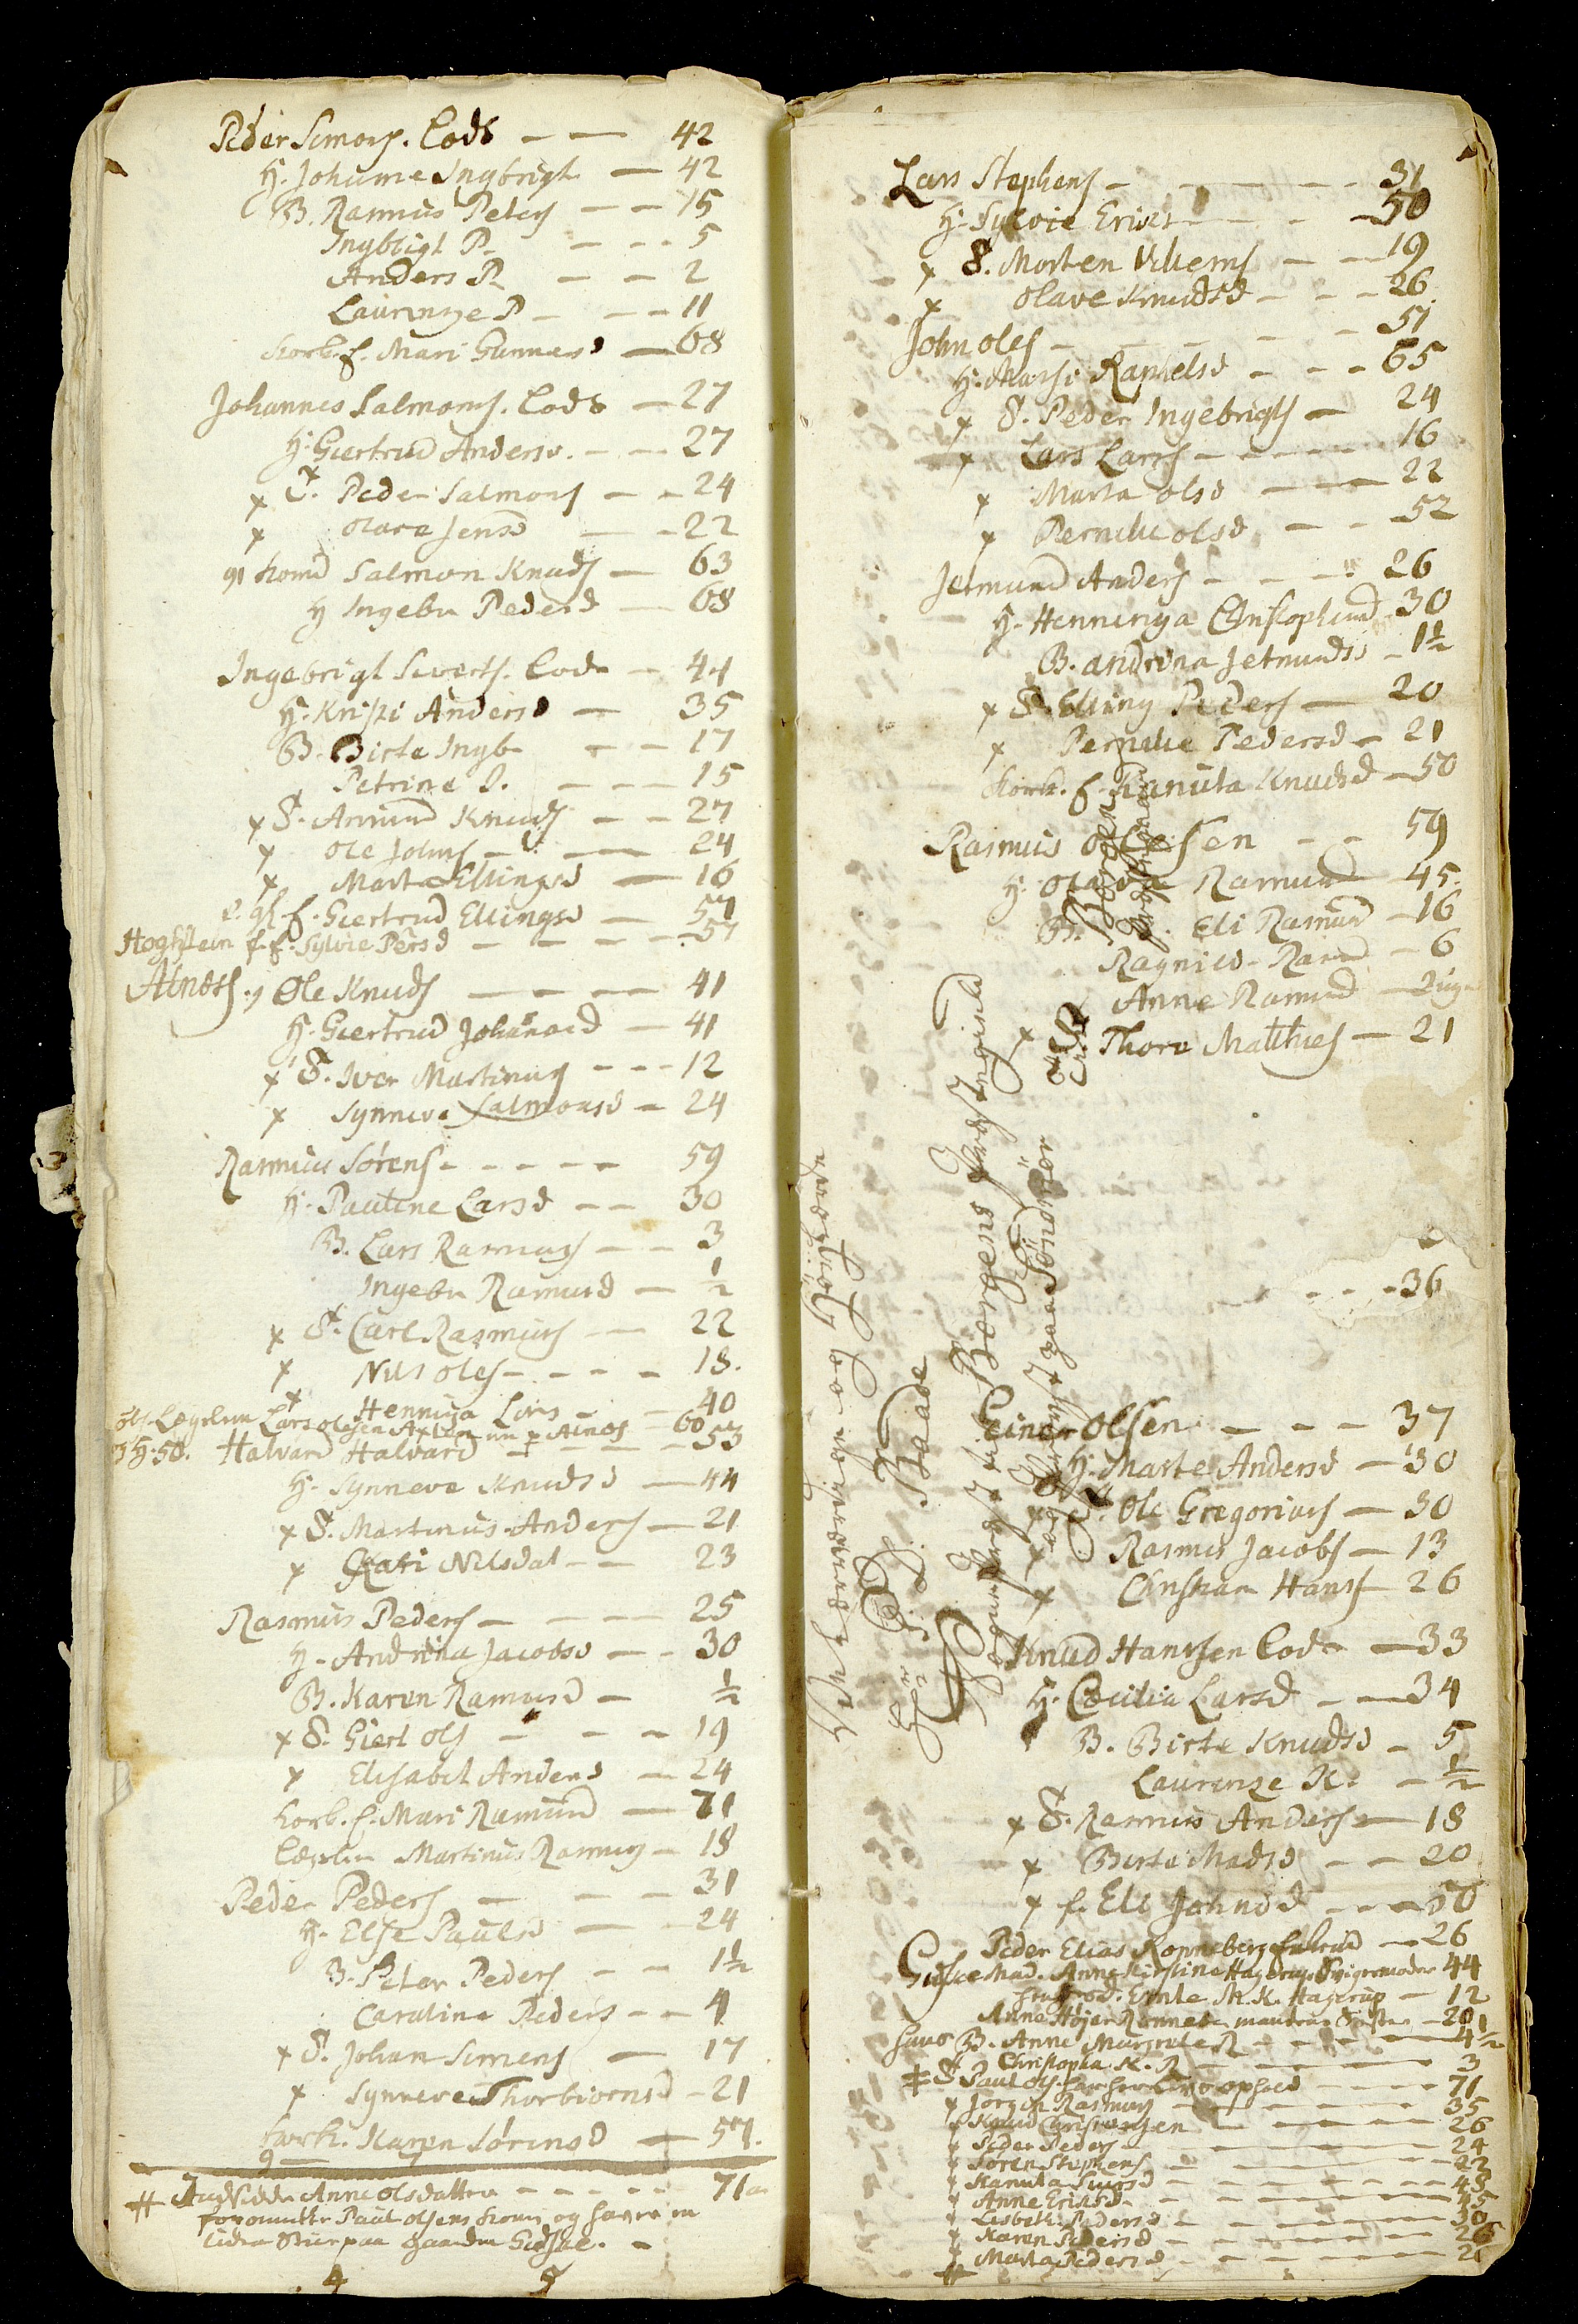 Peder Simons. Lods — — 42
H. Johanne Ingbrigt — 42
B. Rasmus Peters — — 15
Ingbrigt P. — — 5
Anders P. — — 2
Laurenze P — — — 11
f. Mari Gunners — 68
Johannes Salmons. Lods — 27
H. Giertrud Andersd. — — 27
x T. Peder Salmons — — 24
x Olava Jensd — — 22
Salmon Knuds — 63
H Ingebor Pedersd — 68
Ingebrigt Siverts. Lods — 44
H. Kristi Andersd — 35
B. Birte Ingb. — — 17
Petrine I. — — — 15
x T. Amund Knuds — — 27
x Ole Johns — — 24
x Marte Ellingsd — 16
f. Giertrud Ellingsd — 57
f. Sylvie Persd — — — 57
Alnæs Ole Knuds — — — 41
H. Giertrud Johansd — 41
x T. Iver Martinus — — — 12
x Synneve Salmonsd — 24
Rasmus Sørens — — — — 59
H. Pauline Larsd — — 30
B. Lars Rasmus — — 3
Ingebor Rasmusd — ½
x T. Carl Rasmus — 22
x Nils Oles — — — — 18.
x Henninga Lars — 40
Lars Olsen 60
H. 50. Halvard Halvard — — — 53
H. Synneve Knudsd — 44
x T. Martinus Anders — 21
x Kari Nilsdat — — 23
Rasmus Peders — — — — 25
H. Andrina Jacobsd — — 30
B. Karen Rasmusd — ½
x T. Giert Ols — — — 19
x Elisabet Andersd — 24
f. Mari Rasmusd — 71
Martinus Rasmus — 18
Peder Peders — — — 31
H. Else Paulsd — — 24
B. Peter Peders — — 1½
Caroline Peders — — 4
x T. Johan Simens — 17
x Synneve Thorbiørnsd — 21
Karen Sørensd — 57.
# Anne Olsdatter — — — — 71
Paul Olsens og
paa Gaarden
4 5
Lars Stephens — — — — — 31
H. Sylvie Eriks — — — 50
x T. Morten Villums — — 19
x Olave Knudsd — — — 26
John Oles — — — — — 51
H. Marhi Raphelsd — — — 65
x T. Peder Ingebrigts — 24
x Lars Larss — — — — — 16
x Marta Olsd — — — 22
x Pernille Olsd — — — 52
Jetmund Anders — — — 26
H. Henninga Christophersd — 30
B. Andrina Jetmundsd — 1½
x T. Elling Peders — 20
x Pernille Pedersd — 21
f. Kanuta Knudsd — 50
Rasmus Olesen — — 59
H. Olava Rasmusd — 45.
B. Eli Rasmusd — 16
Ragnild Rasmd — 6
Anne Rasmusd —
x Thore Matthies — 21
— — — 36
Einer Olsen — — — 37
H. Marte Andersd — 30
x T. Ole Gregorius — 30
x Rasmus Jacobs — 13
x Christian Hans — 26
Knud Hanssen Lods — 33
H. Cecilia Larsd — — 34
B. Birte Knudsd — 5
Laurenze K. — ½
x T. Rasmus Anders — 18
x Berte Madsd — — 20
x f. Eli Johnsd — — — 50
Peder Elias Rønneberg — 26
Giske Mad. Anne Kirstine Hagerup Svigermoder 44
M. K. Hagerup — 12
Anna Højer Rønneb. Søster — 20
hans B. Anne Margrete R — — — — ½
Christopha K. R — — — — 3
# T Paul Ols — — — — 71
x Jørgen Rasmus — — — — 35
x Knud Christensen — — — 26
x Peder Peders — — — — 24
x Søren Stephens — — — — 22
x Kanuta Siursd — — — — — 43
x Anne Eriksd — — — — — 45
x Lisbeth Pedersd — — — — — 30
x Karen Pedersd — — — — — 26
x Marta Pedersd — — — — — 21
Hr. P. D. Baade
Sogne Præst til Borgens Præstegield
og Provst paa Søndmør
Borgen